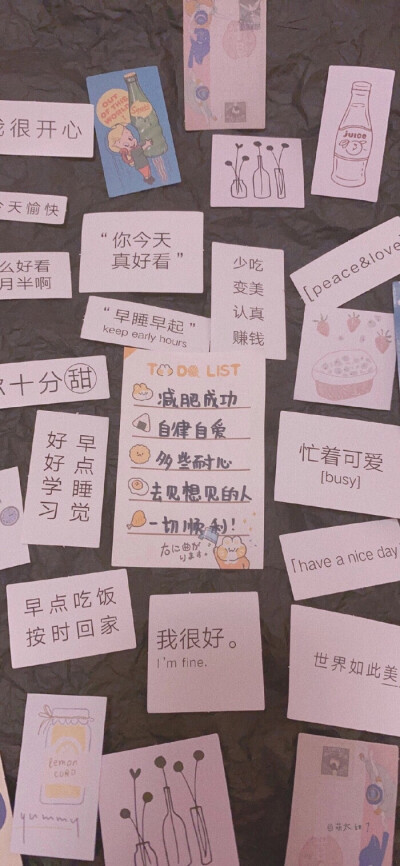 我很开心
OUT OF THIS WORLD
JUICE
今天愉快
“你今天
真好看”
么好看
月半啊
少吃
变美
认真
赚钱
[peace&love]
“早睡早起”
keep early hours
十分甜
TO DO LIST
减肥成功
自律自爱
多些耐心
去见想见的人
一切顺利!
早点睡觉
好好学习
忙着可爱
[busy]
「have a nice day
早点吃饭
按时回家
我很好。
I'm fine.
世界如此美
lemon
CORD
yummy